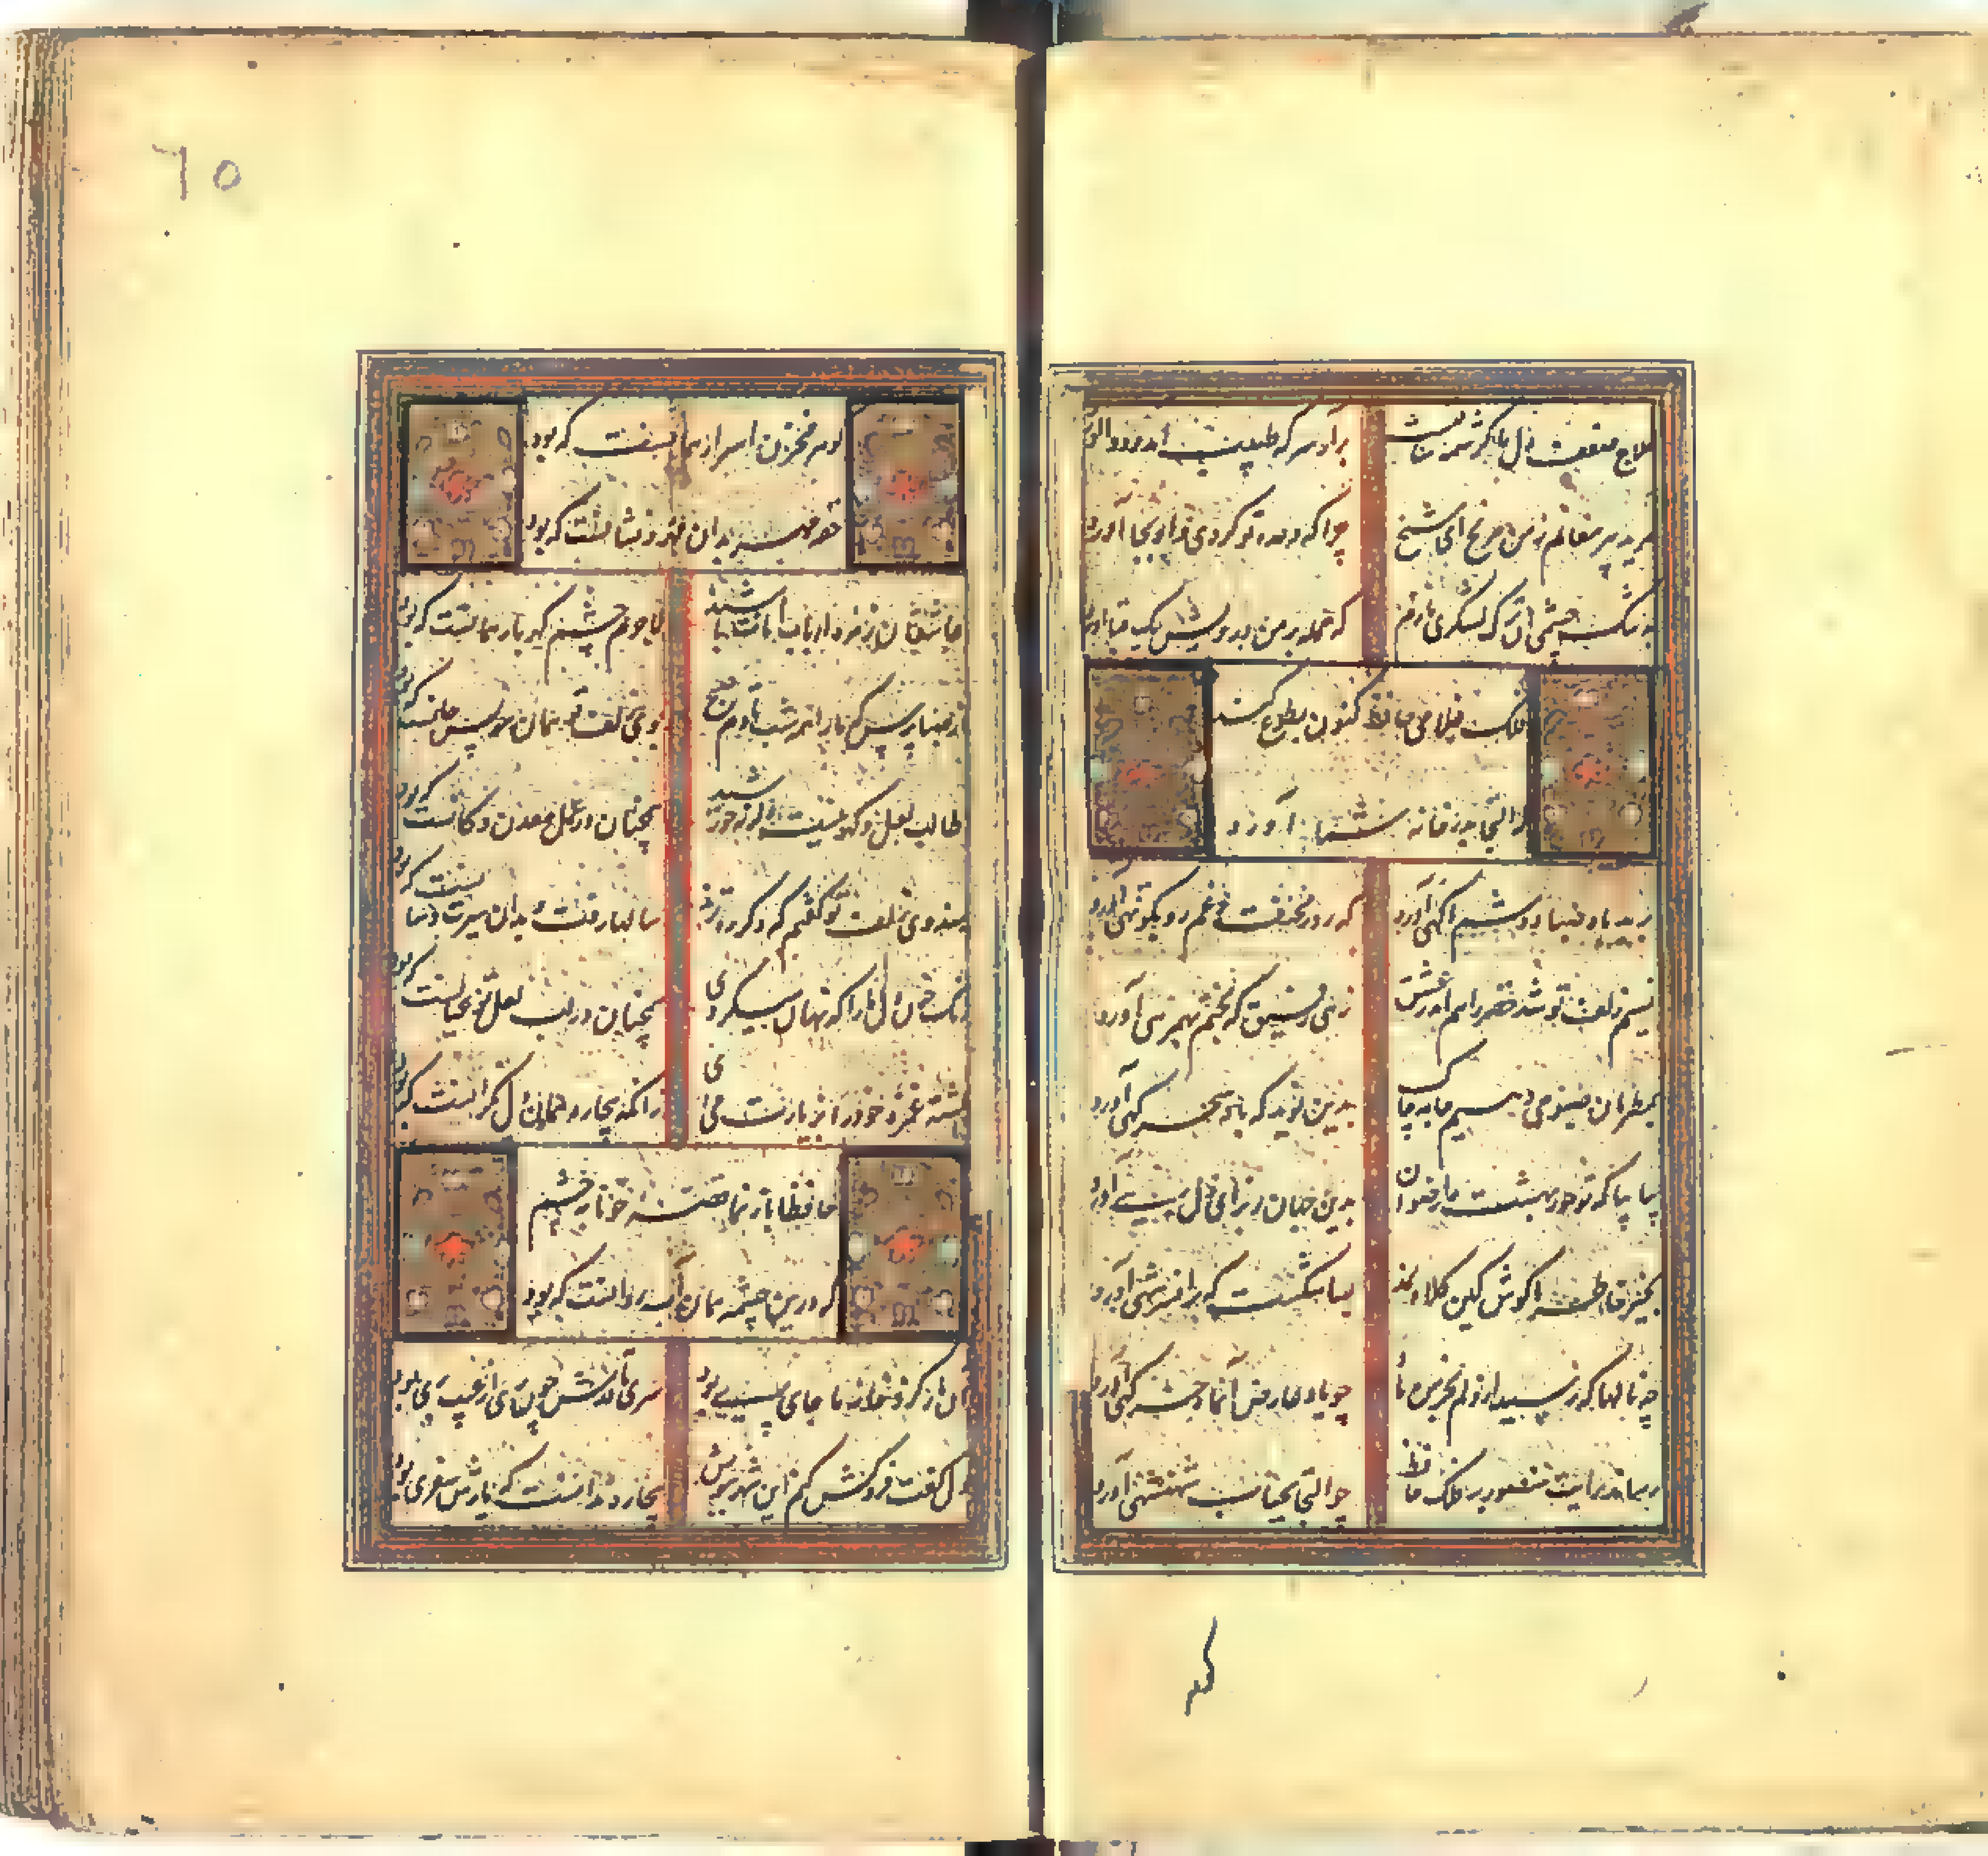 علاج ضعف دل ما کرشمه ساقیست برآر سر که طبیب آمد و دوا آورد
مرید پیر مغانم ز من مرنج ای شیخ چرا که وعده تو کردی و او بجا آورد
به تنگ چشمی آن ترک لشکری نازم که حمله بر من درویش یک قبا آورد
فلک غلامی حافظ کنون بطوع کند
که التجا بدر خانه شما آورد
برید باد صبا دوشم آگهی آورد که روز محنت و غم رو بکوتهی آورد
نسیم زلف تو شد خضر راهم اندر عشق زهی رفیق که بختم بهمرهی آورد
بمطربان صبوحی دهیم جامه چاک بدین نوید که باد سحرگهی آورد
بیا بیا که تو حور بهشت را رضوان بدین جهان ز برای دل رهی آورد
بخیر خاطر ما کوش کین کلاه نمد بسا شکست که بر افسر شهی آورد
چه نالها که رسید از دلم بخرمن ماه چو یاد عارض آن ماه خرگهی آورد
رساند رایت منصور بر فلک حافظ چو التجا بجناب شهنشهی آورد
کوهر
٦٥
گوهر مخزن اسرار همانست که بود
حقه مهر بدان مهر و نشانست که بود
عاشقان زمره ارباب امانت باشند لاجرم چشم گهربار همانست که بود
از صبا پرس که ما را همه شب تا دم صبح بوی زلف تو همان مونس جانست که بود
طالب لعل و گهر نیست و گرنه خورشید همچنان در عمل معدن و کانست که بود
هندوی زلف تو گفتم که دگر ره نزند سالها رفت و بدان سیرت و سانست که بود
رنگ خون دل ما را که نهان میکردی همچنان در لب لعل تو عیانست که بود
کشته غمزه خود را بزیارت می آی زانکه بیچاره همان دل نگرانست که بود
حافظا باز نما قصه خونابه چشم
که درین چشمه همان آب روانست که بود
آن یار کزو خانه ما جای پری بود سر تا قدمش چون پری از عیب بری بود
دل گفت فروکش کنم این شهر ببویش بیچاره ندانست که یارش سفری بود